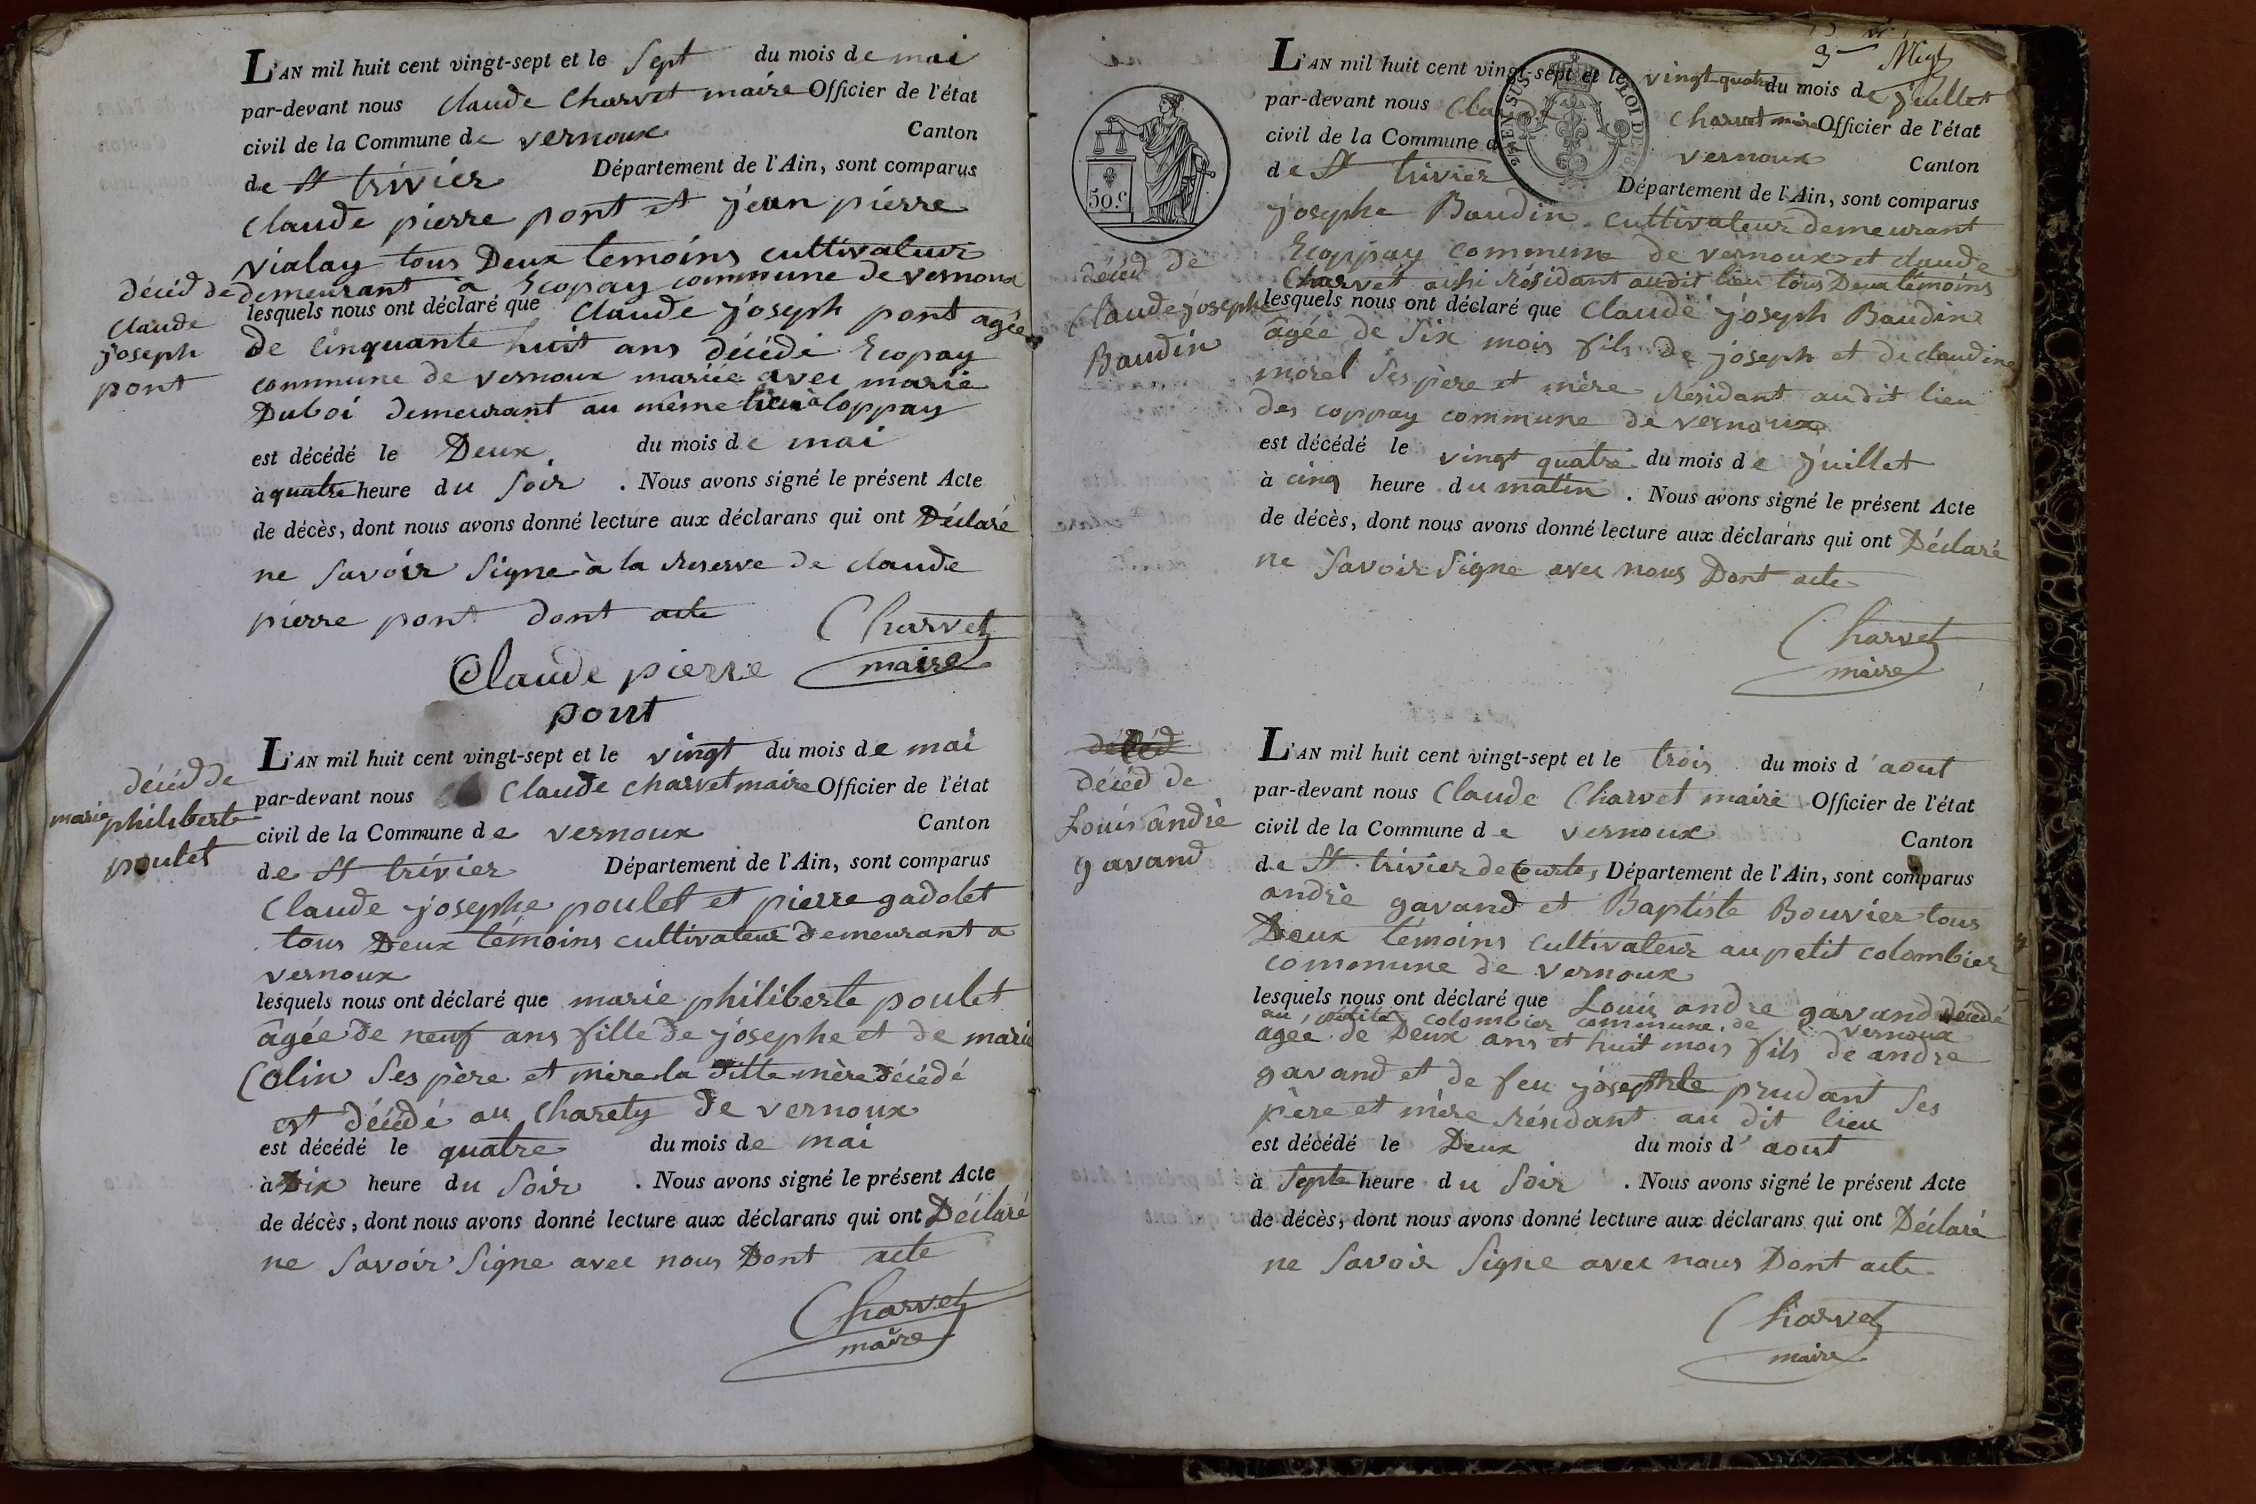 L'AN mil huit cent vingt-sept et le Sept du mois de mai
par-devant nous Claude Charvet maire Officier de l'état
civil de la Commune de vernoux Canton
de St trivier Département de l'Ain, sont comparus
Claude pierre pont et jean pierre
vialay tous Deux temoins cultivateur
demeurant a Ecopay commune de vernoux
lesquels nous ont déclaré que Claude joseph pont agée
de Cinquante huit ans décédé Ecopay
commune de vernoux mariée avec marie
Duboi demeurant au même lieu
est décédé le Deux du mois de mai
à quatre heure du Soir . Nous avons signé le présent Acte
de décès, dont nous avons donné lecture aux déclarans qui ont Déclaré
ne Savoir Signe à la reserve de claude
pierre pont dont acte
Charvet
maire
Claude pierre
pont
décéd de
Claude
joseph
pont
L'AN mil huit cent vingt-sept et le vingt du mois de mai
par-devant nous Claude Charvet maire Officier de l'état
civil de la Commune de vernoux Canton
de St trivier Département de l'Ain, sont comparus
Claude josephe poulet et pierre gadolet
tous Deux témoins cultivateur Demeurant a
vernoux
lesquels nous ont déclaré que marie philiberte poulet
âgée de neuf ans fille de josephe et de marie
Colin Ses père et mère la Ditte mère décédé
est décédé au Charety de vernoux
est décédé le quatre du mois de mai
à Dix heure du Soir . Nous avons signé le présent Acte
de décès, dont nous avons donné lecture aux déclarans qui ont Déclaré
ne Savoir Signe avec nous Dont acte
Charvet
maire
décéd de
marie philiberte
poulet
L'AN mil huit cent vingt-sept et le vingt quatre du mois de juillet
par-devant nous Claude Charvet maire Officier de l'état
civil de la Commune de vernoux Canton
de St trivier Département de l'Ain, sont comparus
josephe Baudin cultivateur demeurant
Ecoppay commune de vernoux et claude
Charvet aussi résidant audit lieu tous Deux témoins
lesquels nous ont déclaré que Claude joseph Baudin
âgée de Six mois fils de joseph et de claudine
morel Ses père et mère résidant audit lieu
des coppay commune de vernoux
est décédé le vingt quatre du mois de juillet
à cinq heure du matin . Nous avons signé le présent Acte
de décès, dont nous avons donné lecture aux déclarans qui ont Déclaré
ne Savoir Signe avec nous Dont acte
Charvet
maire
50.c
décéd de
Claude josephe
Baudin
L'AN mil huit cent vingt-sept et le trois du mois d'aout
par-devant nous Claude Charvet maire Officier de l'état
civil de la Commune de vernoux Canton
de St trivier de Courtes Département de l'Ain, sont comparus
andré gavand et Baptiste Bouvier tous
Deux témoins cultivateur au petit colombier
commune de vernoux
lesquels nous ont déclaré que Louis andre gavand décédé
au petit colombier commune de vernoux
agée de Deux ans et huit mois fils de andre
gavand et de feu josephte prudant Ses
père et mère résidant au dit lieu
est décédé le Deux du mois d'aout
à Septe heure du Soir . Nous avons signé le présent Acte
de décès, dont nous avons donné lecture aux déclarans qui ont Déclaré
ne Savoir Signe avec nous Dont acte
Charvet
maire
décéd de
Louis andré
gavand